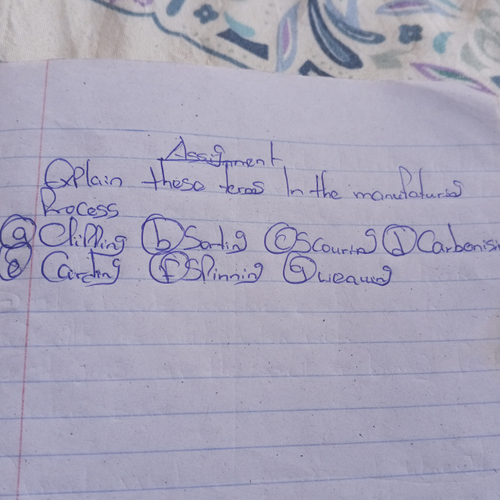 Assignment
Explain these terms In the manufaturing
Process
(a) Clipping (b) Sorting (c) Scouring (d) Carbonisin
(e) Carding (f) Spinning (g) weaving